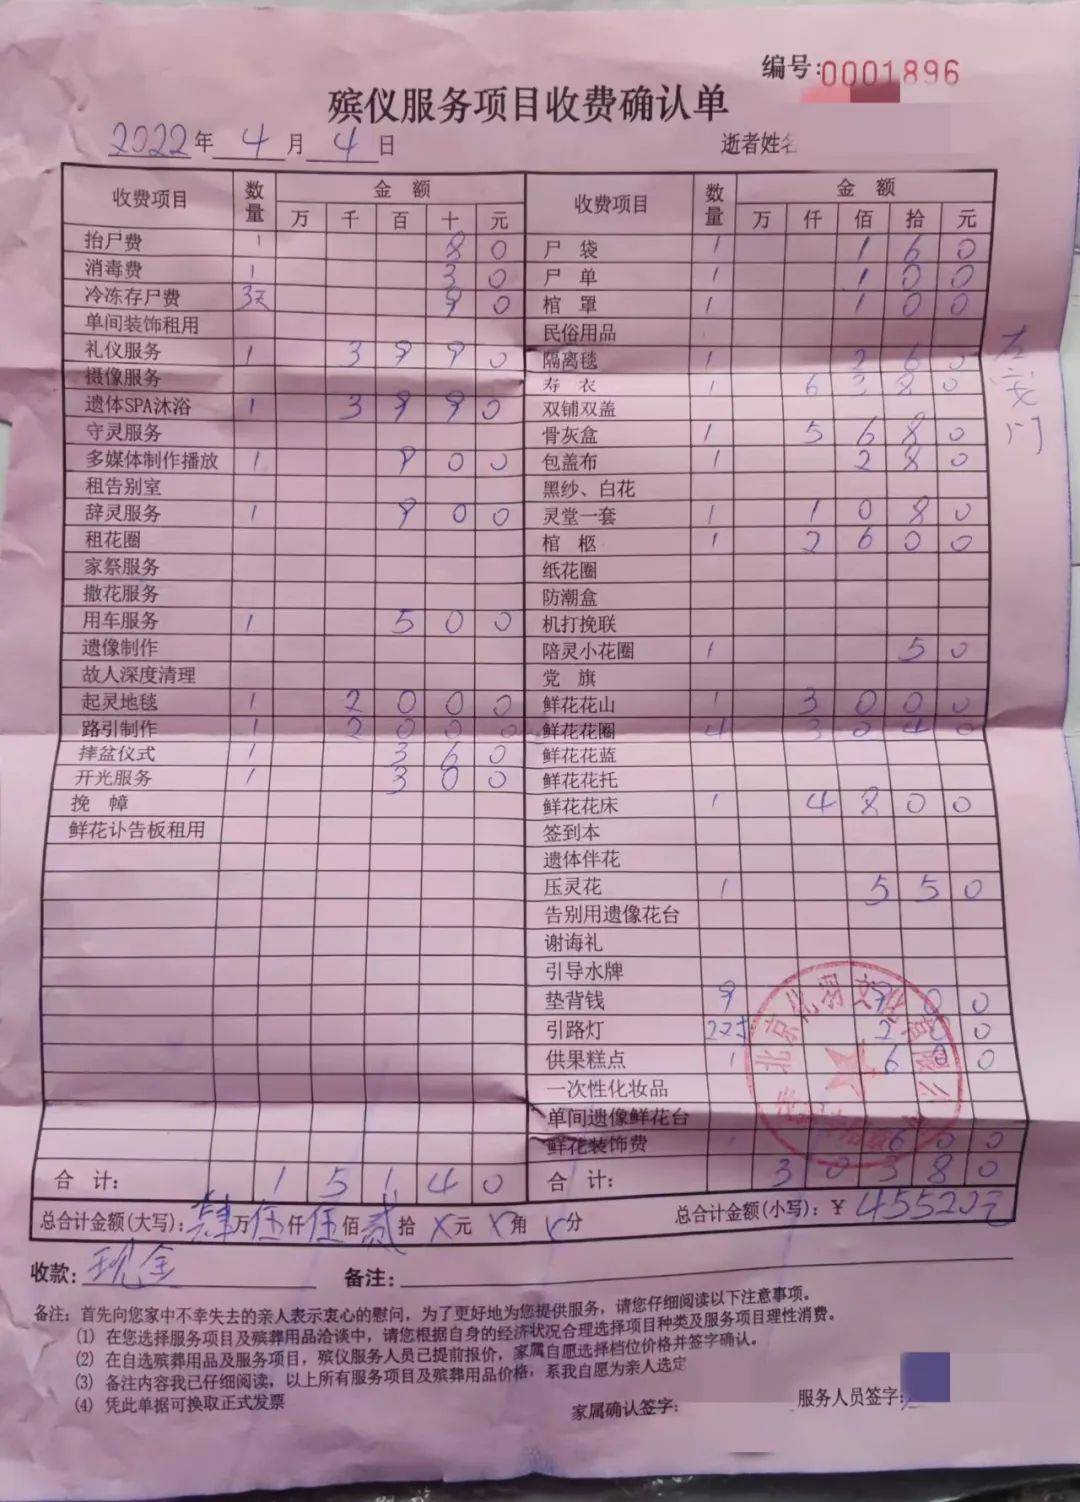 编号:0001896
殡仪服务项目收费确认单
2022年4月4日
逝者姓名
收费项目 数量 金额 万 千 百 十 元
抬尸费 1 8 0
消毒费 1 3 0
冷冻存尸费 3天 9 0
单间装饰租用
礼仪服务 1 3 9 9 0
摄像服务
遗体SPA沐浴 1 3 9 9 0
守灵服务
多媒体制作播放 1 9 0 0
租告别室
辞灵服务 1 9 0 0
租花圈
家祭服务
撒花服务
用车服务 1 5 0 0
遗像制作
故人深度清理
起灵地毯 1 2 0 0 0
路引制作 1 2 0 0 0
摔盆仪式 1 3 6 0
开光服务 1 3 0 0
挽 幛
鲜花讣告板租用
合 计: 1 5 1 4 0
收费项目 数量 金额 万 仟 佰 拾 元
尸 袋 1 1 6 0
尸 单 1 1 0 0
棺 罩 1 1 0 0
民俗用品
隔离毯 1 2 6 0
寿 衣 1 6 3 8 0
双铺双盖
骨灰盒 1 5 6 8 0
包盖布 1 2 8 0
黑纱、白花
灵堂一套 1 1 0 8 0
棺 柩 1 2 6 0 0
纸花圈
防潮盒
机打挽联
陪灵小花圈 1 5 0
党 旗
鲜花花山 1 3 0 0 0
鲜花花圈 4 3 0 4 0
鲜花花蓝
鲜花花托
鲜花花床 1 4 8 0 0
签到本
遗体伴花
压灵花 1 5 5 0
告别用遗像花台
谢诲礼
引导水牌
垫背钱 9 9 0 0
引路灯 2 0 0
供果糕点 1 6 0 0
一次性化妆品
单间遗像鲜花台
鲜花装饰费 1 6 0 0
合 计: 3 0 3 8 0
左安门
北京化羽文化有限公
总合计金额(大写):肆万伍仟伍佰贰拾X元X角X分 总合计金额(小写):¥45520元
收款:现金 备注:
备注:首先向您家中不幸失去的亲人表示衷心的慰问,为了更好地为您提供服务,请您仔细阅读以下注意事项。
(1) 在您选择服务项目及殡葬用品洽谈中,请您根据自身的经济状况合理选择项目种类及服务项目理性消费。
(2) 在自选殡葬用品及服务项目,殡仪服务人员已提前报价,家属自愿选择档位价格并签字确认。
(3) 备注内容我已仔细阅读,以上所有服务项目及殡葬用品价格,系我自愿为亲人选定
(4) 凭此单据可换取正式发票
家属确认签字:
服务人员签字: